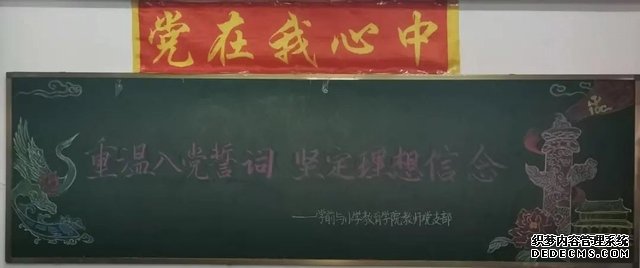 党在我心中
重温入党誓词 坚定理想信念
——学前与小学教育学院教师党支部
织梦内容管理系统
DEDECMS.COM